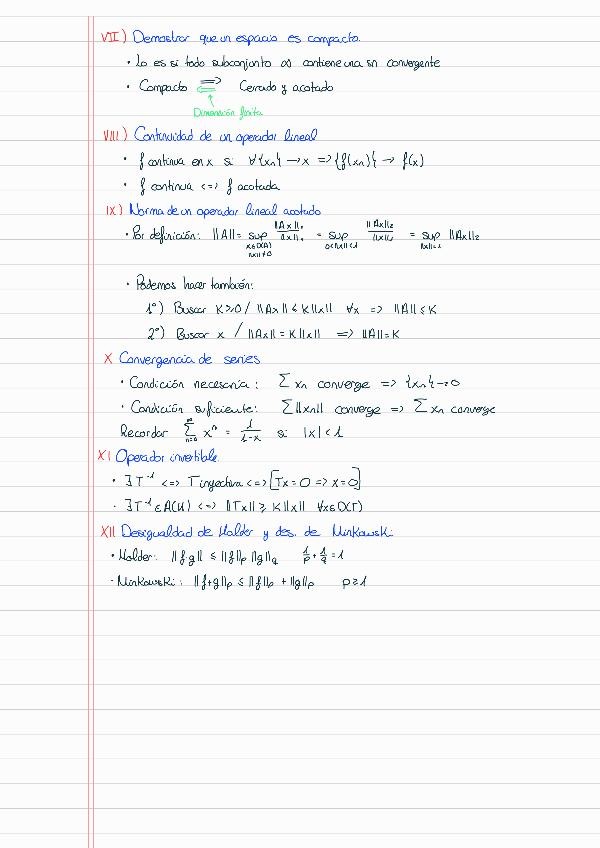 VII) Demostrar que un espacio es compacto.
• Lo es si todo subconjunto ∞ contiene una sn convergente
• Compacto ⟹ ⟸ Cerrado y acotado
Dimensión finita
VIII) Continuidad de un operador lineal
• f continua en x si ∀{xn} → x => {f(xn)} → f(x)
• f continua <=> f acotada
IX) Norma de un operador lineal acotado
• Por definición: ||A|| = sup x∈D(A) ||x||≠0 ||Ax||₂/||x||₁ = sup 0<||x||<1 ||Ax||₂/||x||₁ = sup ||x||=1 ||Ax||₂
• Podemos hacer también:
1º) Buscar K>0 / ||Ax|| ≤ K||x|| ∀x => ||A|| ≤ K
2º) Buscar x / ||Ax|| = K||x|| => ||A|| = K
X Convergencia de series
• Condición necesaria: ∑ xn converge => {xn} → 0
• Condición suficiente: ∑ ||xn|| converge => ∑ xn converge
Recordar ∑ n=0 ∞ xⁿ = 1/(1-x) si |x| < 1
XI Operador invertible.
• ∃ T⁻¹ <=> T inyectiva <=> [Tx = 0 => x = 0]
• ∃ T⁻¹ ∈ A(U) <=> ||Tx|| ≥ K||x|| ∀x∈D(T)
XII Desigualdad de Holder y des. de Minkowski
• Holder: ||f·g|| ≤ ||f||p ||g||q 1/p + 1/q = 1
• Minkowski: ||f+g||p ≤ ||f||p + ||g||p p≥1